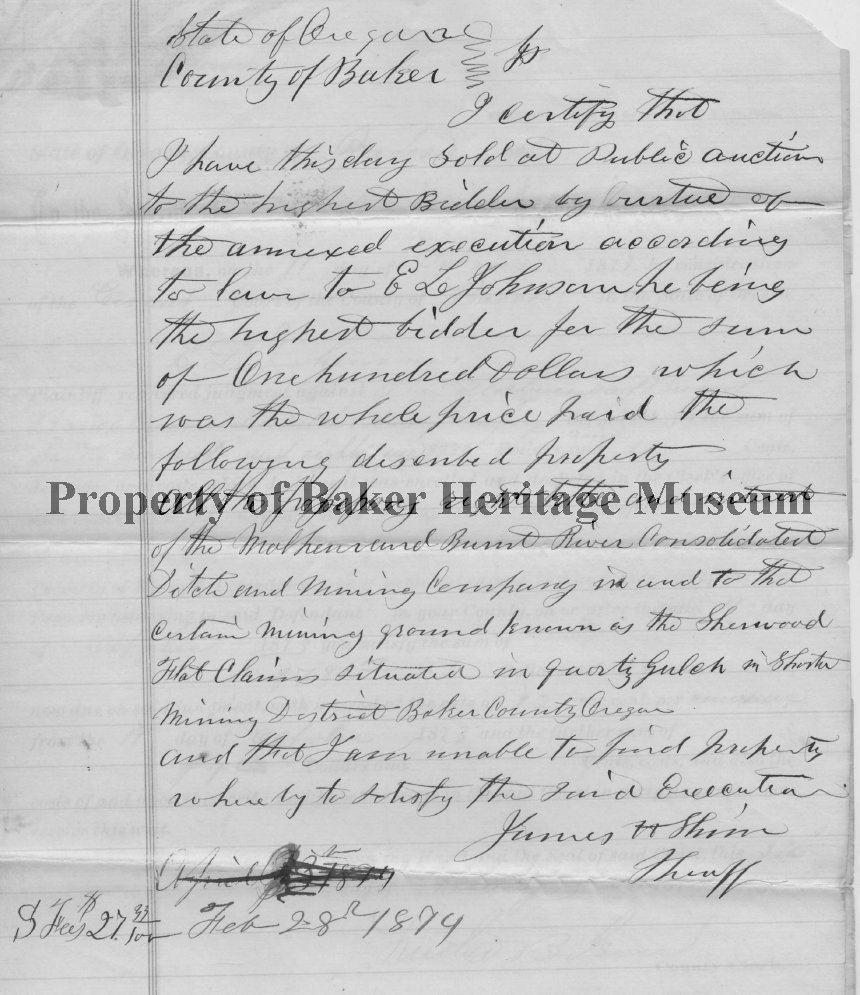 State of Oregon
County of Baker } ss
I certify that
I have this day Sold at Public auction
to the highest Bidder by virtue of
the annexed execution according
to law to E L Johnson he being
the highest bidder for the sum
of One hundred Dollars which
was the whole price paid the
following discribed property
Property of Baker Heritage Museum
All the right title and intrest
of the Malheur and Burnt River Consolidated
Ditch and Mining Company in and to that
certain mining ground known as the Sherwood
Flat Claims situated in quartz Gulch in Shasta
Mining District Baker County Oregon
and that I am unable to find property
where by to satisfy the said Execution
James H Shinn
Sheriff
April 1879
S Fees 27 Feb 28 1879